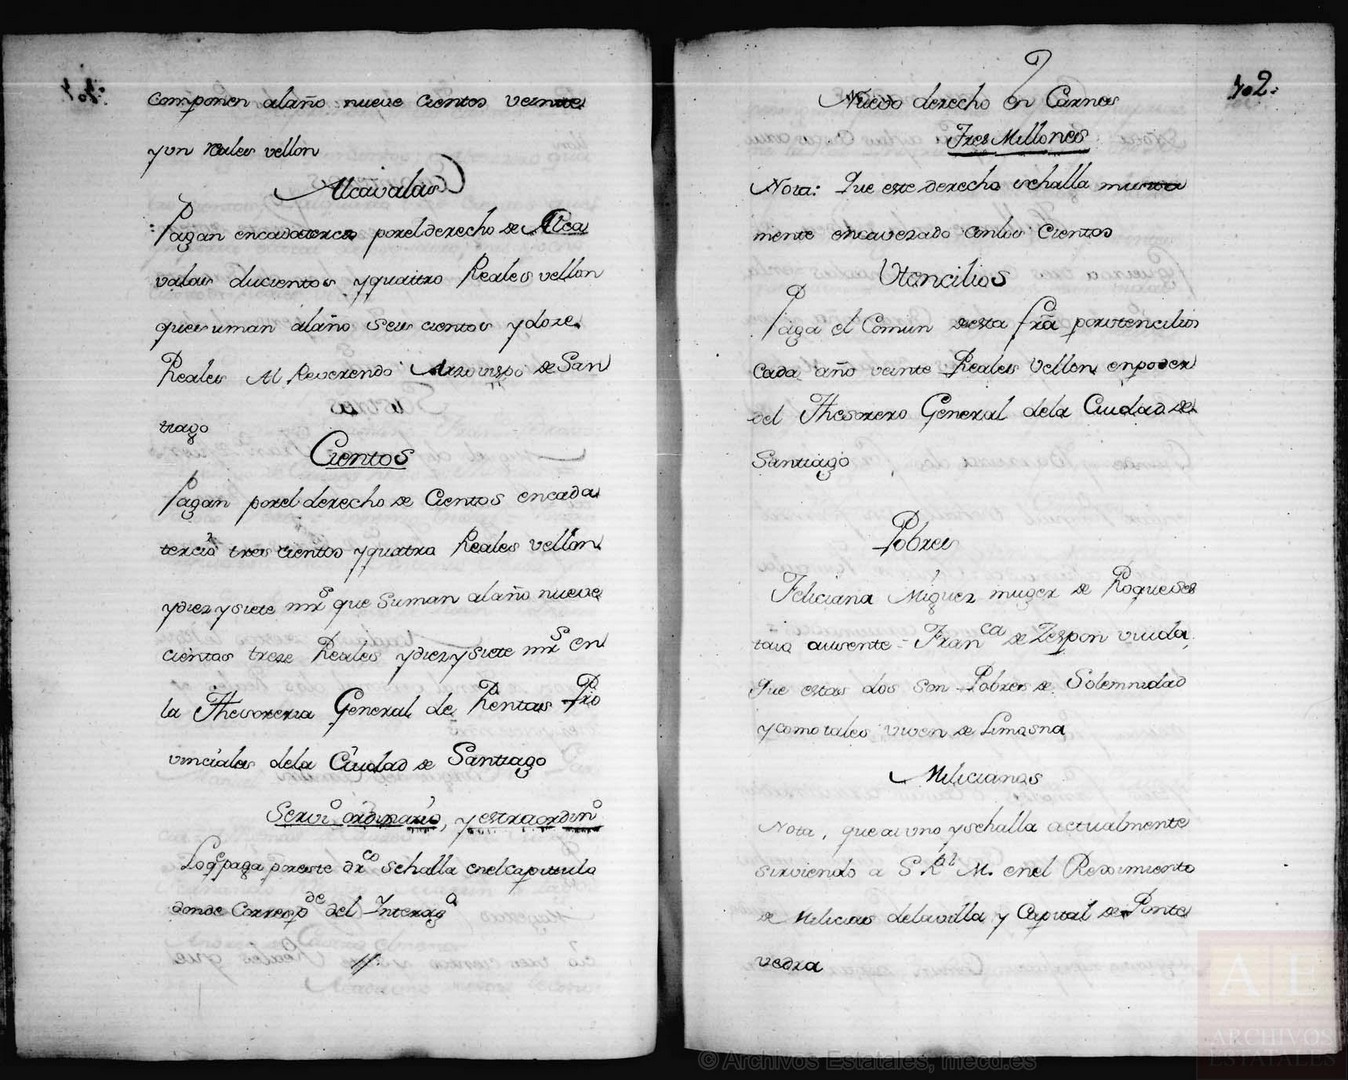 componen alaño nueve cientos veinte
y un reales vellon
Alcavalas
Pagan encadatercio porelderecho de Alca
valas ducientos y quatro Reales vellon
que suman alaño seis cientos y doze
Reales Al Reverendo Arzovispo de San
tiago
Cientos
Pagan porel derecho de Cientos encada
tercio tres cientos y quatro Reales vellon
y diez y siete mrs que Suman alaño nueve
cientos treze Reales y diez y siete mrs en
la Thesoreria General de Rentas Pro
vinciales dela Ciudad de Santiago
Servio ordinario, y extraordino
Loqe paga poreste dro Sehalla enelcapitulo
donde Correspde del Interoga
402
Nuebo derecho en Carnes
Tres Millones
Nota: Que este derecho sehalla
mente encavezado conlos Cientos
Utencilios
Paga el Comun desta fra porutencilios
Cada año veinte Reales Vellon enpoder
del Thesorero General dela Ciudad de
Santiago
Pobres
Feliciana Miguez muger de Roque
ausente - Franca de Zespon viuda,
Que estas dos Son Pobres de Solemnidad
y como tales viven de Limosna
Milicianos
Nota, que ai uno y sehalla actualmente
sirviendo a S. Rl M. enel Reximiento
de Milicias delavilla y Capital de Ponte
vedra
© Archivos Estatales, mecd.es
A E
ARCHIVOS
ESTATALES